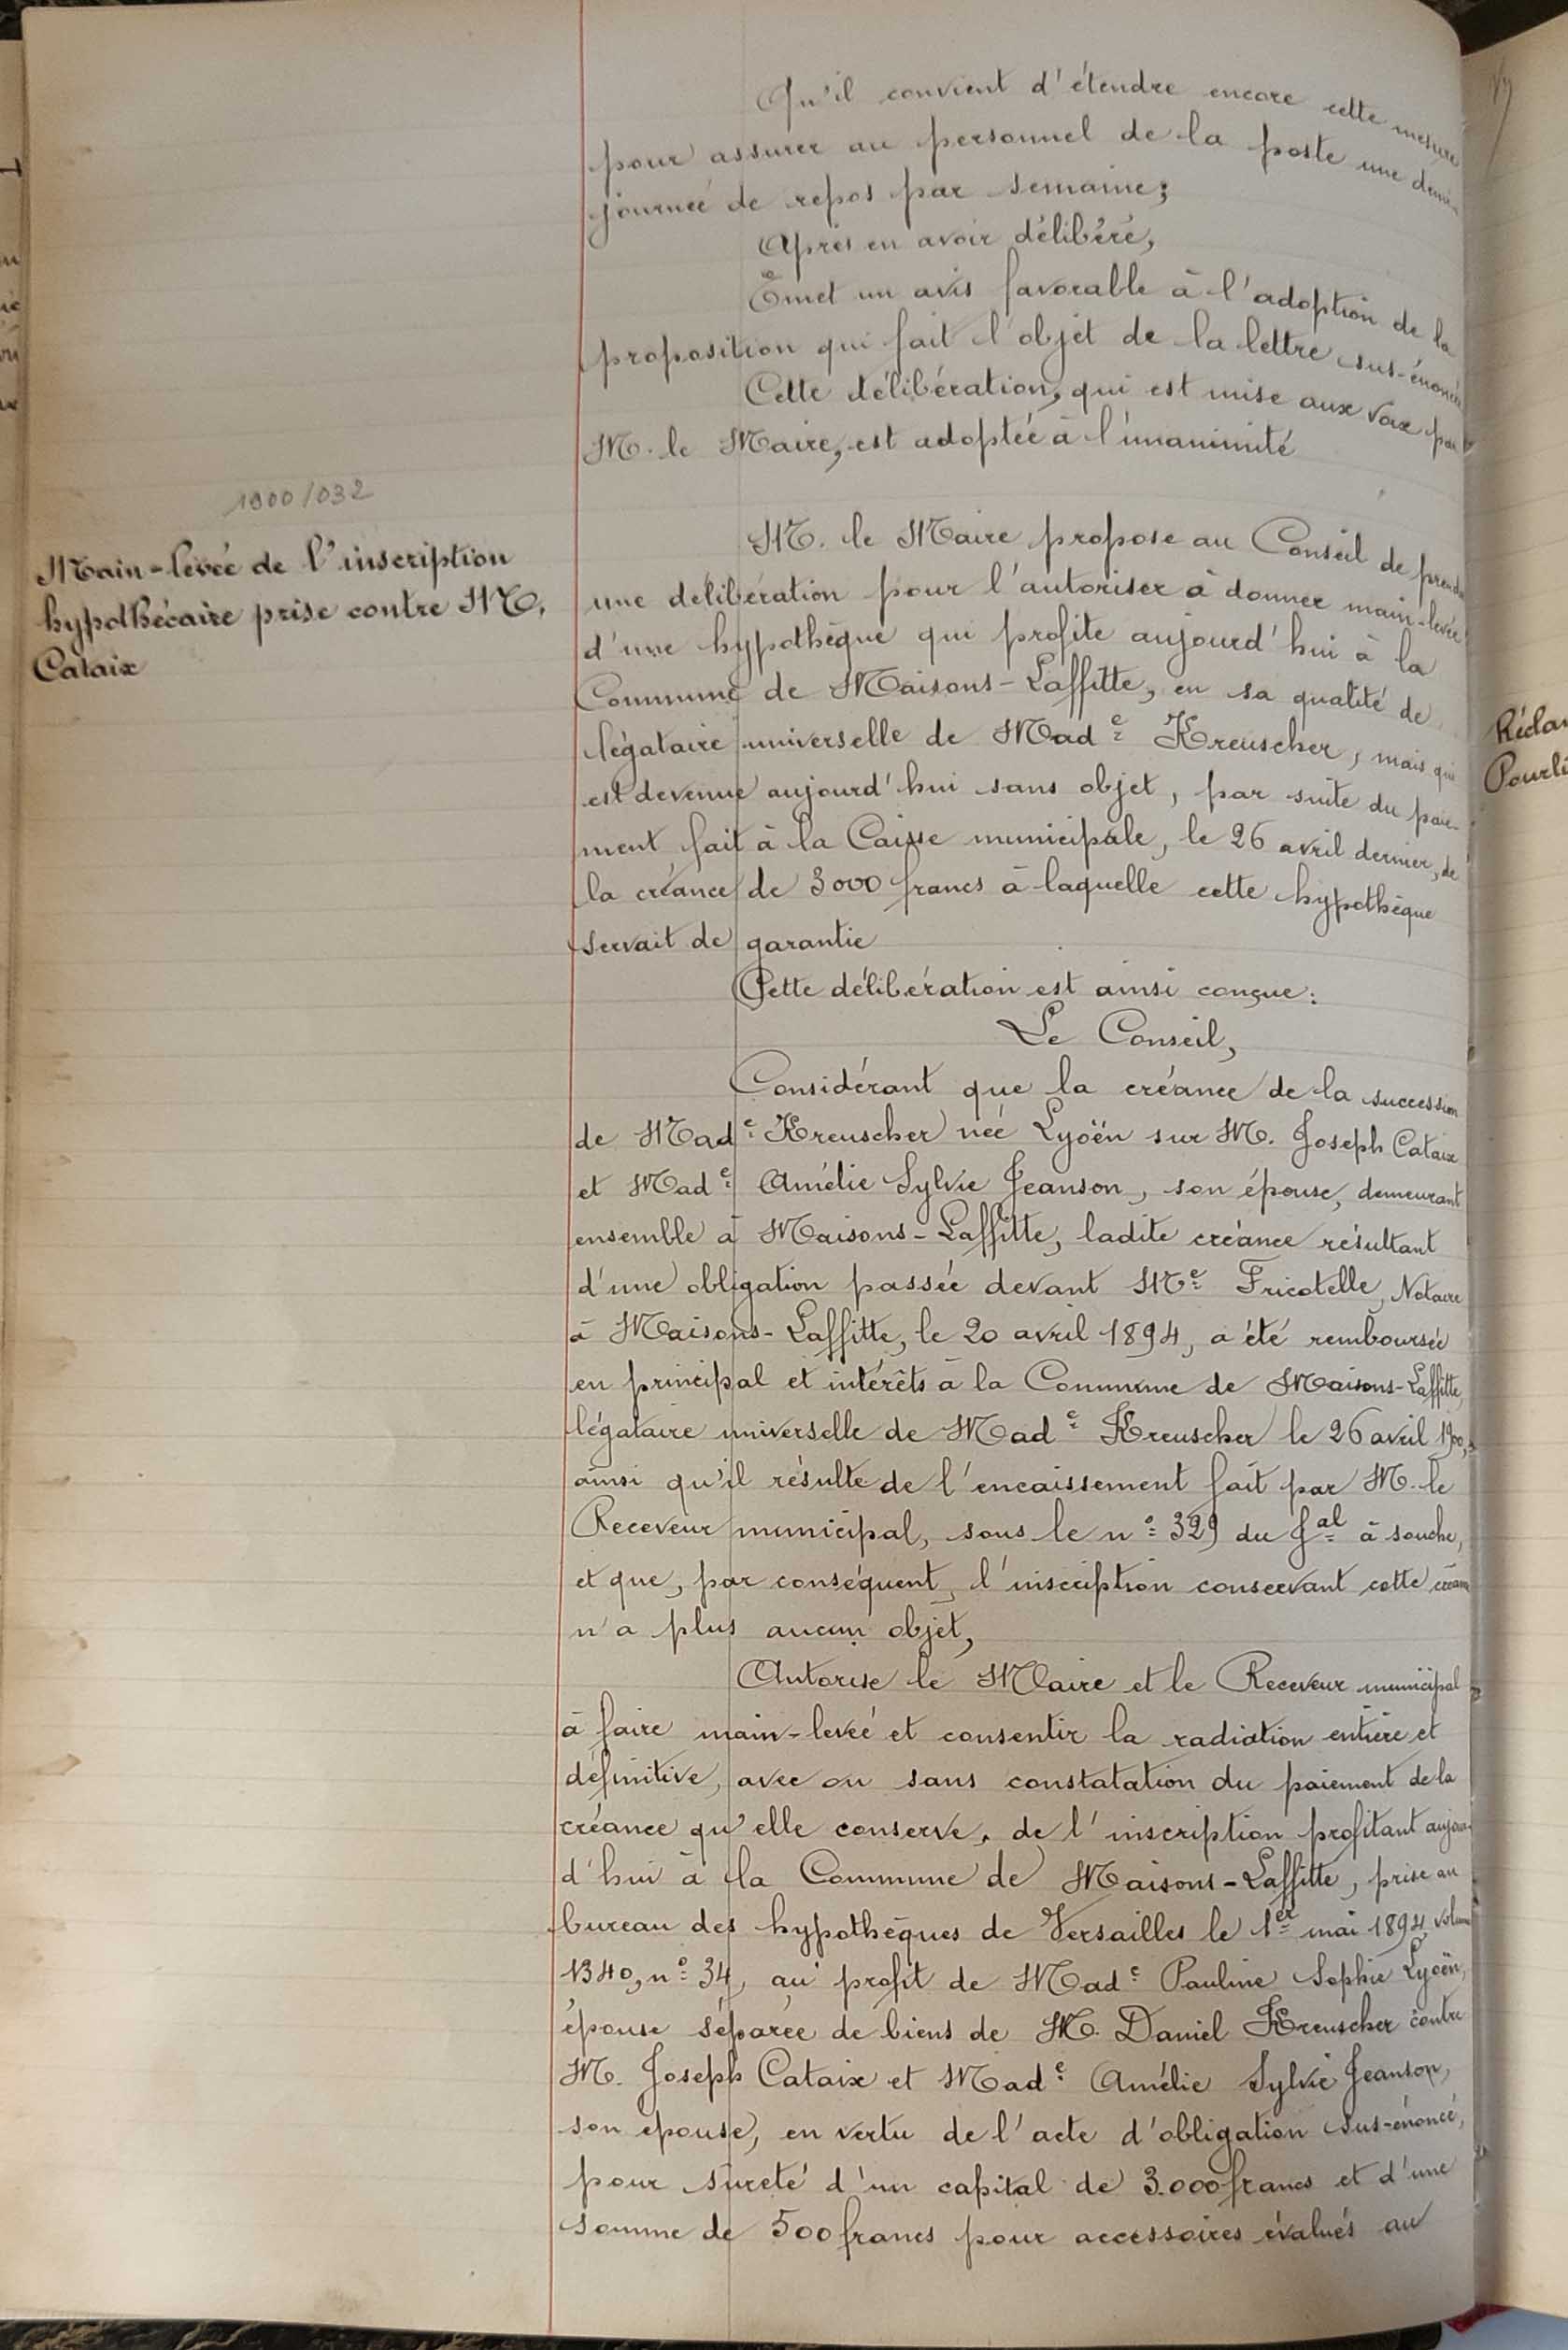 Qu'il convient d'étendre encore cette mesure
pour assurer au personnel de la poste une demie
journée de repos par semaine;
Après en avoir délibéré,
Émet un avis favorable à l'adoption de la
proposition qui fait l'objet de la lettre sus-énoncée
Cette délibération, qui est mise aux voix par
M. le Maire, est adoptée à l'unanimité
1900/032
Main-levée de l'inscription
hypothécaire prise contre M.
Cataix
M. le Maire propose au Conseil de prendre
une délibération pour l'autoriser à donner main-levée
d'une hypothèque qui profite aujourd'hui à la
Commune de Maisons-Laffitte, en sa qualité de
légataire universelle de Made Kreuscher, mais qui
est devenue aujourd'hui sans objet, par suite du paie-
ment fait à la Caisse municipale, le 26 avril dernier, de
la créance de 3000 francs à laquelle cette hypothèque
servait de garantie
Cette délibération est ainsi conçue:
Le Conseil,
Considérant que la créance de la succession
de Made Kreuscher née Lyoën sur M. Joseph Cataix
et Made Amélie Sylvie Jeanson, son épouse, demeurant
ensemble à Maisons-Laffitte, ladite créance résultant
d'une obligation passée devant Me Fricotelle, Notaire
à Maisons-Laffitte, le 20 avril 1894, a été remboursée
en principal et intérêts à la Commune de Maisons-Laffitte,
légataire universelle de Made Kreuscher le 26 avril 1900,
ainsi qu'il résulte de l'encaissement fait par M. le
Receveur municipal, sous le no 329 du Jal à souche,
et que, par conséquent, l'inscription conservant cette créance
n'a plus aucun objet,
Autorise le Maire et le Receveur municipal
à faire main-levée et consentir la radiation entière et
définitive, avec ou sans constatation du paiement de la
créance qu'elle conserve, de l'inscription profitant aujour-
d'hui à la Commune de Maisons-Laffitte, prise au
bureau des hypothèques de Versailles le 1er mai 1894, volume
1340, no 34, au profit de Made Pauline Sophie Lyoën,
épouse séparée de biens de M. Daniel Kreuscher contre
M. Joseph Cataix et Made Amélie Sylvie Jeanson,
son épouse, en vertu de l'acte d'obligation sus-énoncé,
pour sûreté d'un capital de 3.000 francs et d'une
somme de 500 francs pour accessoires évalués au
Récla
Pourli